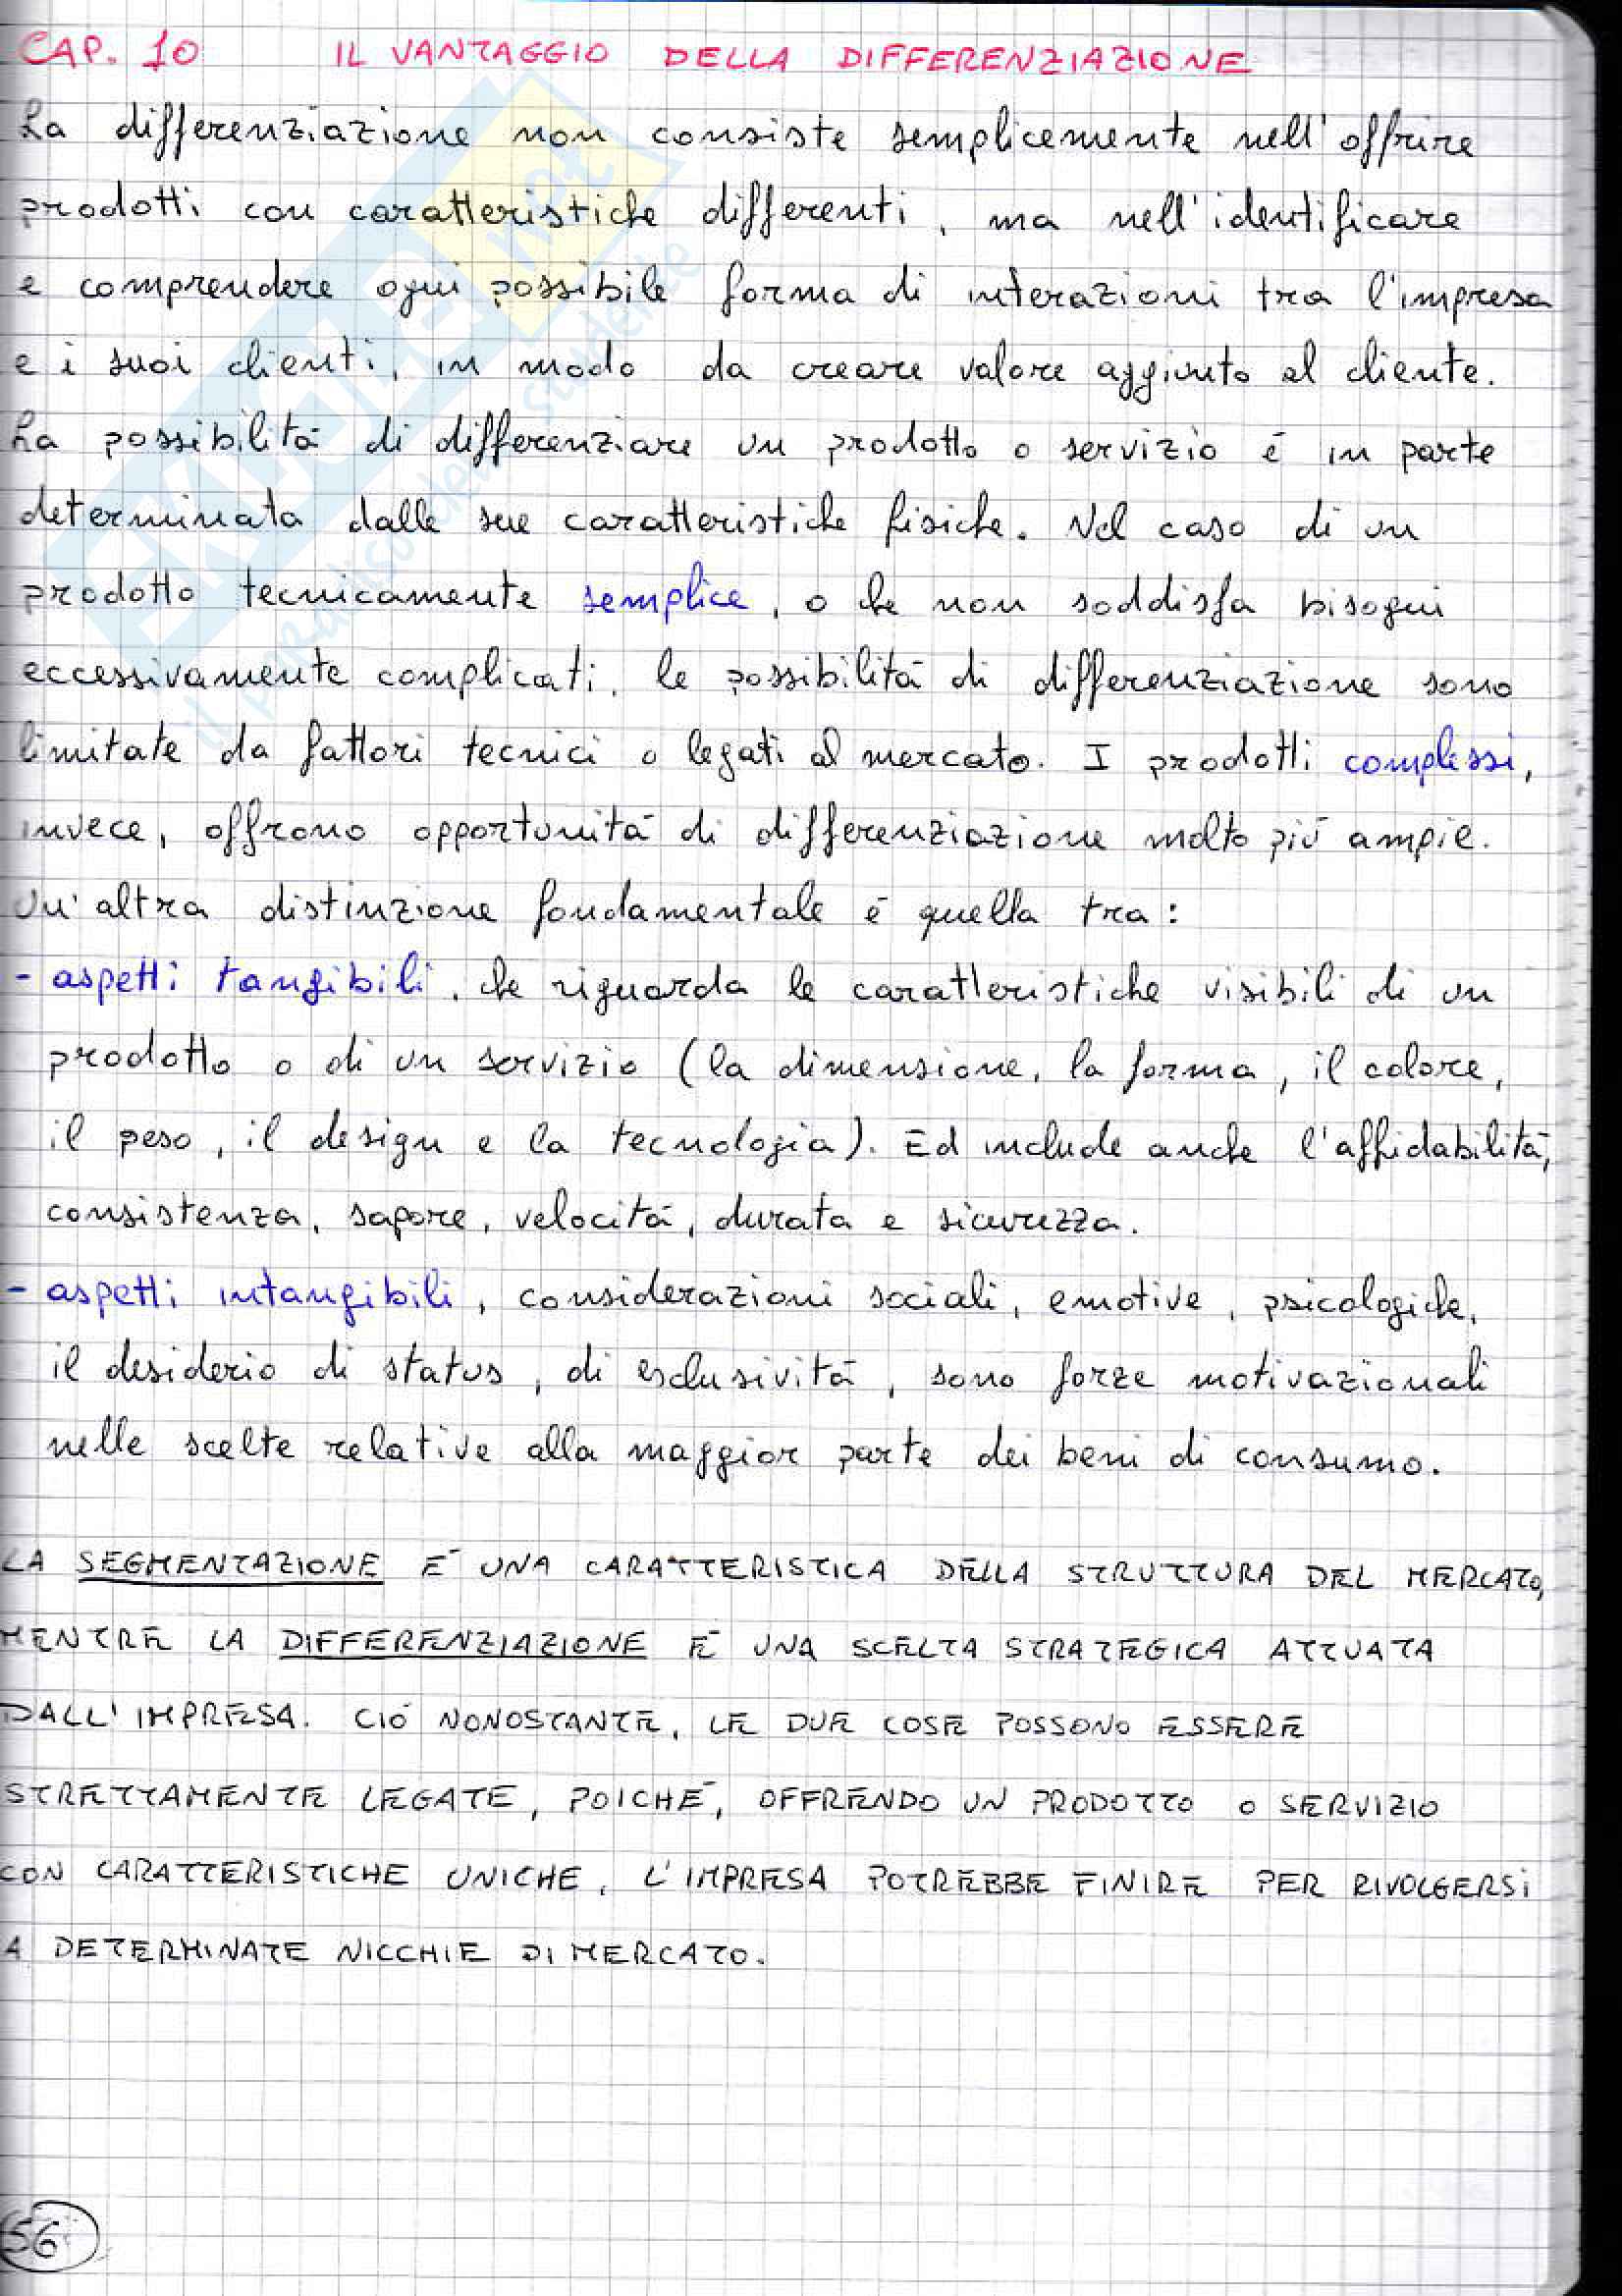 CAP. 10 IL VANTAGGIO DELLA DIFFERENZIAZIONE
La differenziazione non consiste semplicemente nell'offrire
prodotti con caratteristiche differenti, ma nell'identificare
e comprendere ogni possibile forma di interazioni tra l'impresa
e i suoi clienti, in modo da creare valore aggiunto al cliente.
La possibilità di differenziare un prodotto o servizio è in parte
determinata dalle sue caratteristiche fisiche. Nel caso di un
prodotto tecnicamente semplice, o che non soddisfa bisogni
eccessivamente complicati, le possibilità di differenziazione sono
limitate da fattori tecnici o legati al mercato. I prodotti complessi,
invece, offrono opportunità di differenziazione molto più ampie.
Un'altra distinzione fondamentale è quella tra:
- aspetti tangibili, che riguarda le caratteristiche visibili di un
prodotto o di un servizio (la dimensione, la forma, il colore,
il peso, il design e la tecnologia). Ed include anche l'affidabilità,
consistenza, sapore, velocità, durata e sicurezza.
- aspetti intangibili, considerazioni sociali, emotive, psicologiche,
il desiderio di status, di esclusività, sono forze motivazionali
nelle scelte relative alla maggior parte dei beni di consumo.
LA SEGMENTAZIONE È UNA CARATTERISTICA DELLA STRUTTURA DEL MERCATO,
MENTRE LA DIFFERENZIAZIONE È UNA SCELTA STRATEGICA ATTUATA
DALL'IMPRESA. CIÒ NONOSTANTE, LE DUE COSE POSSONO ESSERE
STRETTAMENTE LEGATE, POICHÉ, OFFRENDO UN PRODOTTO O SERVIZIO
CON CARATTERISTICHE UNICHE, L'IMPRESA POTREBBE FINIRE PER RIVOLGERSI
A DETERMINATE NICCHIE DI MERCATO.
56